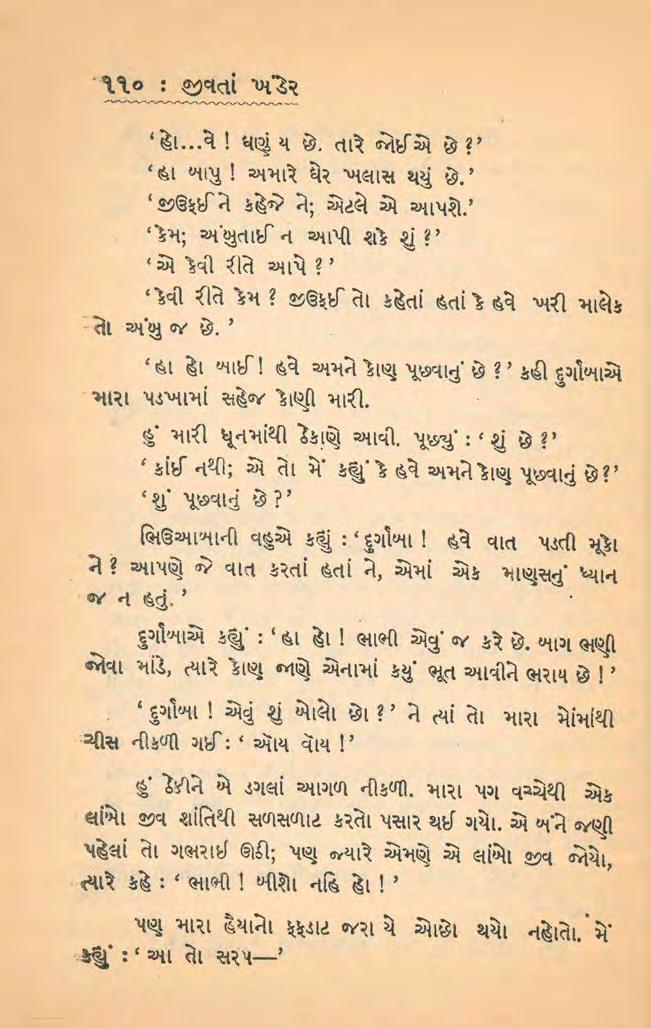 ૧૧૦ : જીવતાં ખંડેર
‘હો...વે ! ઘણું ય છે. તારે જોઈએ છે ?’
‘હા બાપુ ! અમારે ઘેર ખલાસ થયું છે.’
‘જીઉફઈને કહેજે ને; એટલે એ આપશે.’
‘કેમ; અંબુતાઈ ન આપી શકે શું ?’
‘એ કેવી રીતે આપે ?’
‘કેવી રીતે કેમ ? જીઉફઈ તો કહેતાં હતાં કે હવે ખરી માલેક
તો અંબુ જ છે.’
‘હા હો બાઈ ! હવે અમને કોણ પૂછવાનું છે ?’ કહી દુર્ગાબાએ
મારા પડખામાં સહેજ કોણી મારી.
હું મારી ધૂનમાંથી ઠેકાણે આવી. પૂછ્યું : ‘શું છે ?’
‘કાંઈ નથી; એ તો મેં કહ્યું કે હવે અમને કોણ પૂછવાનું છે ?’
‘શું પૂછવાનું છે ?’
ભિઉઆબાની વહુએ કહ્યું : ‘દુર્ગાબા ! હવે વાત પડતી મૂકો
ને ? આપણે જે વાત કરતાં હતાં ને, એમાં એક માણસનું ધ્યાન
જ ન હતું.’
દુર્ગાબાએ કહ્યું : ‘હા હો ! ભાભી એવું જ કરે છે. બાગ ભણી
જોવા માંડે, ત્યારે કોણ જાણે એનામાં કયું ભૂત આવીને ભરાય છે !’
‘દુર્ગાબા ! એવું શું બોલો છો ?’ ને ત્યાં તો મારા મોંમાંથી
ચીસ નીકળી ગઈ : ‘ઓય વોય !’
હું ઠેકીને બે ડગલાં આગળ નીકળી. મારા પગ વચ્ચેથી એક
લાંબો જીવ શાંતિથી સળસળાટ કરતો પસાર થઈ ગયો. એ બંને જણી
પહેલાં તો ગભરાઈ ઊઠી; પણ જ્યારે એમણે એ લાંબો જીવ જોયો,
ત્યારે કહે : ‘ભાભી ! બીશો નહિ હો !’
પણ મારા હૈયાનો ફફડાટ જરા યે ઓછો થયો નહોતો. મેં
કહ્યું : ‘આ તો સરપ—’